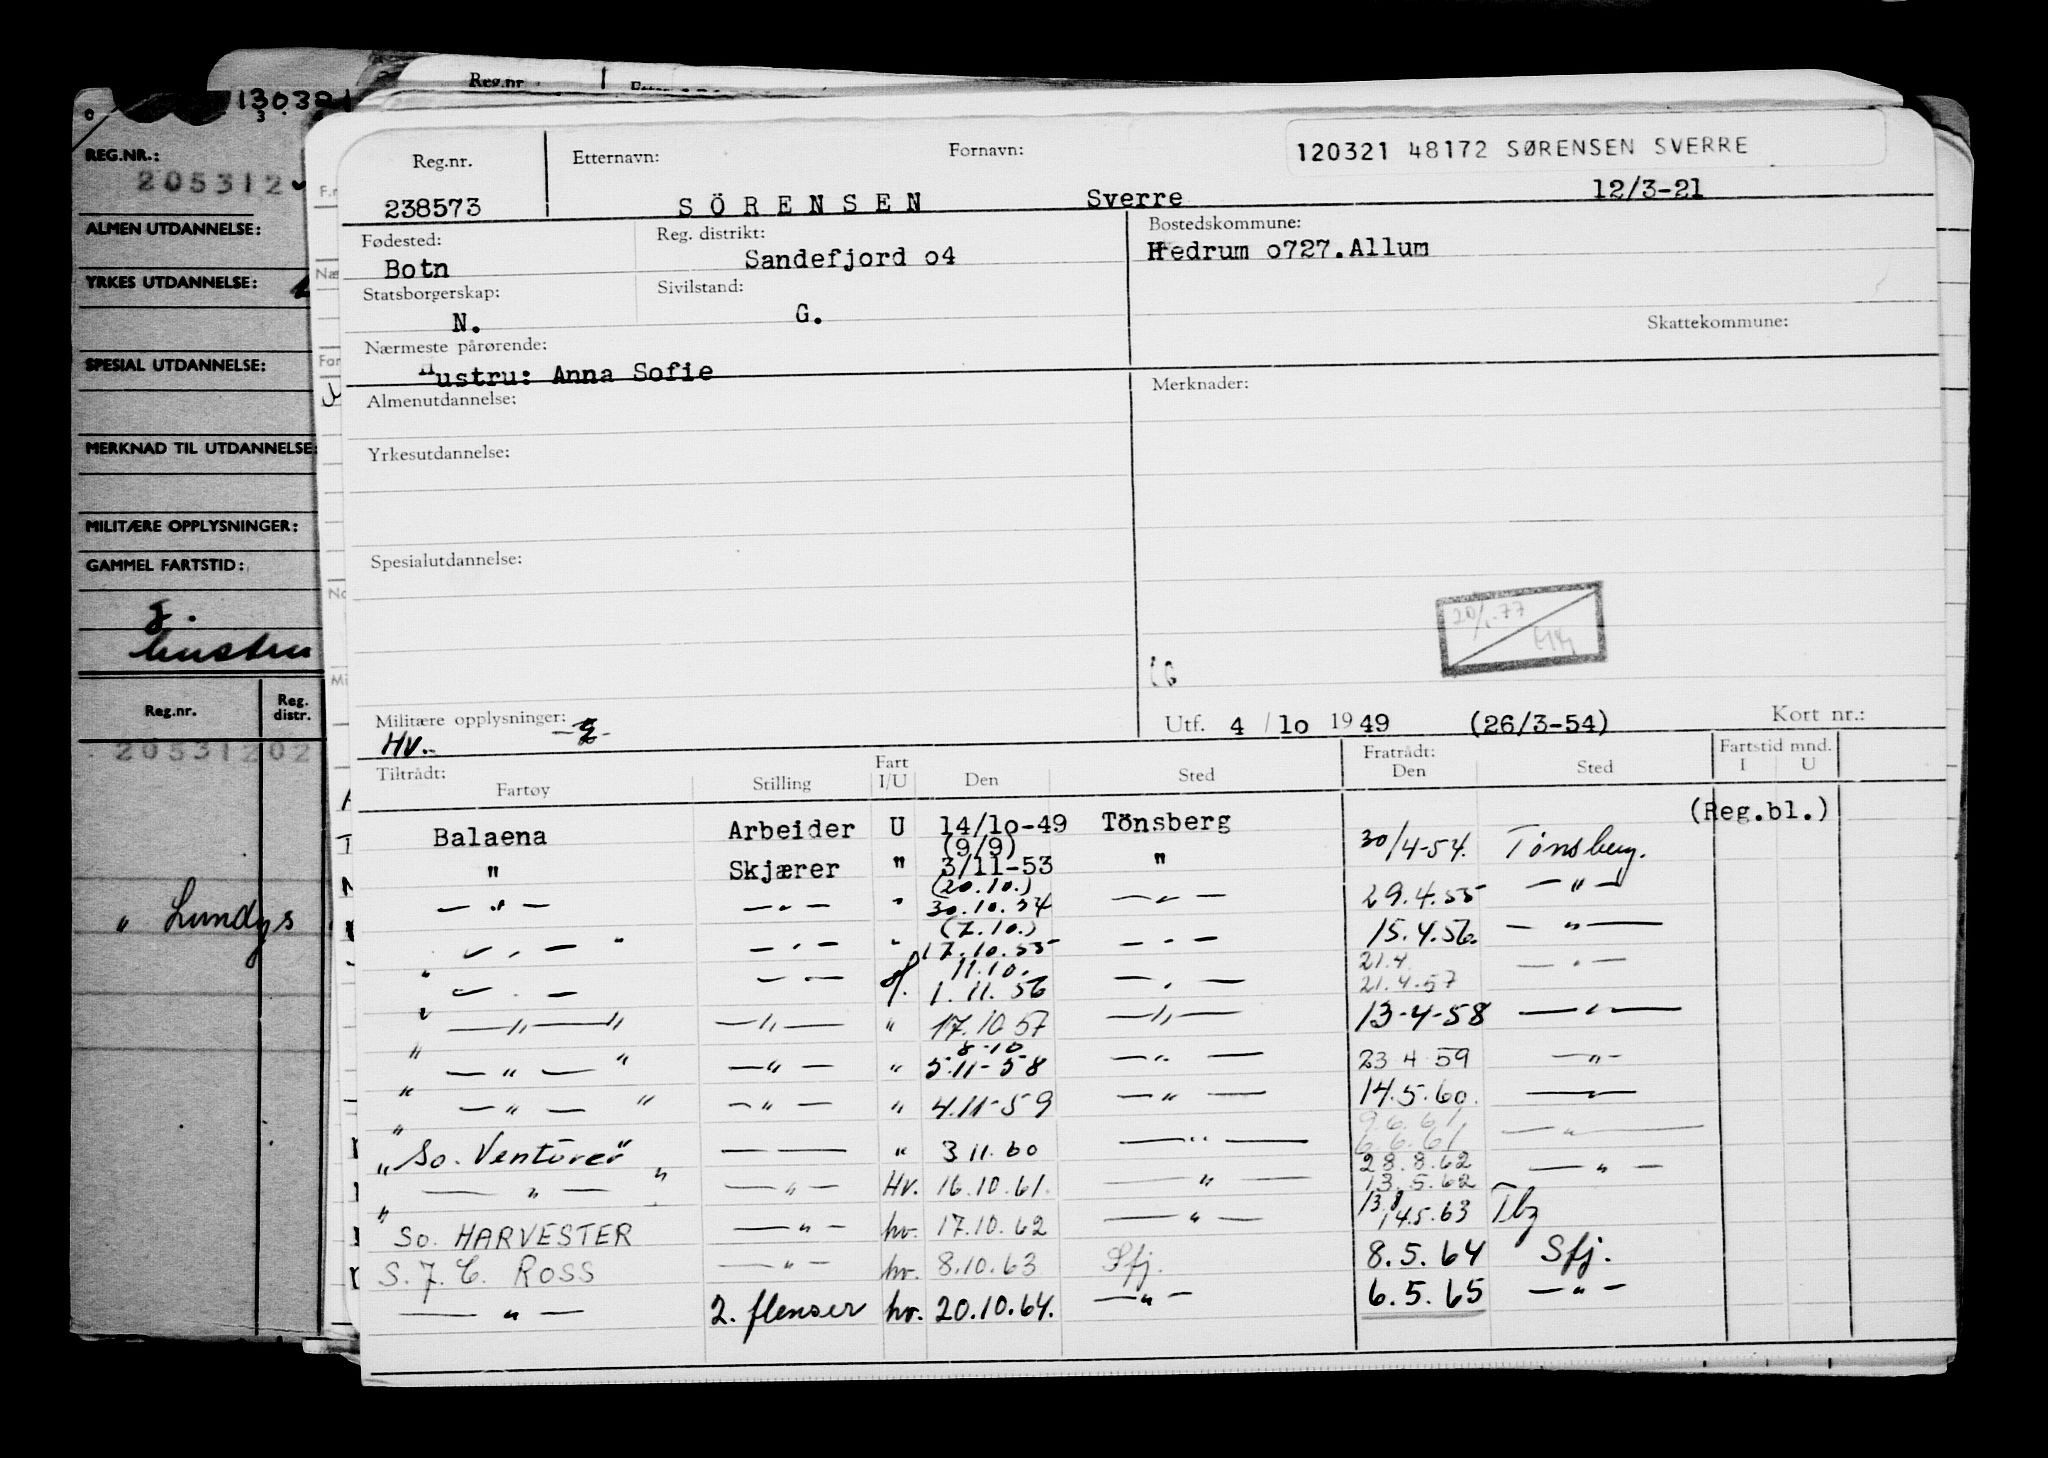 130321
REG.NR.:
205312
ALMEN UTDANNELSE:
YRKES UTDANNELSE:
SPESIAL UTDANNELSE:
MERKNAD TIL UTDANNELSE:
MILITÆRE OPPLYSNINGER:
GAMMEL FARTSTID:
g.
hustru
Reg.nr. Reg. distr.
205312 02
" Lundgs
Reg.nr.
Reg.nr. Etternavn: Fornavn: 120321 48172 SØRENSEN SVERRE
238573 SÖRENSEN Sverre 12/3-21
Fødested: Reg. distrikt: Bostedskommune:
Botn Sandefjord o4 Hedrum o727.Allum
Statsborgerskap: Sivilstand:
N. G. Skattekommune:
Nærmeste pårørende:
Hustru: Anna Sofie
Almenutdannelse: Merknader:
Yrkesutdannelse:
Spesialutdannelse:
20/1.77
Militære opplysninger: Utf. 4 / lo 1949 (26/3-54) Kort nr.:
Hv.
Tiltrådt: Fartøy Stilling Fart I/U Den Sted Fratrådt: Den Sted Fartstid mnd. I U
(Reg.bl.)
Balaena Arbeider U 14/lo-49 Tönsberg
(9/9)
" Skjærer " 3/11-53 " 30/4-54. Tønsberg.
(20.10.)
— " — — " — " 30.10.54 — " — 29.4.55 — " —
(7.10.)
— " — " — " — " 17.10.55 — " — 15.4.56. — " —
11.10. 21.4.
" — " — — " — 1.11.56 — " — 21.4.57 — " —
" — " — " — " — " 17.10.57 — " — 13-4-58 — " —
8-10
" — " — " — " — " 5.11-58 — " — 23 4 59 — " —
" — " — " — " — " 4.11-59 — " — 14.5.60. — " —
9.6.61.
" So. Venturer" — — " 3 11.60 — " — 6.6.61. — " —
28.8.62
" — " — " — " — Hv. 16.10.61. — " — 13.5.62 — " —
" So. HARVESTER — " — hv. 17.10.62 — " — 14.5.63 Tbg
S. J. C. ROSS — " — hv. 8.10.63 Sfj. 8.5.64 Sfj.
— " — 2. flenser hv. 20.10.64. — " — 6.5.65 — " —